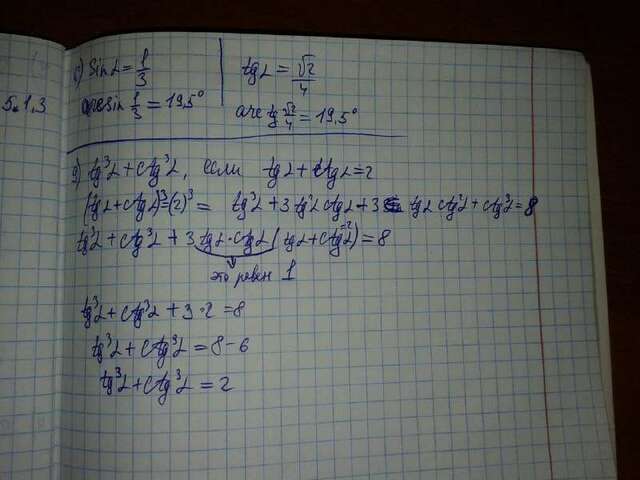 5.1.3
с) sin α = 1/3
arcsin 1/3 = 19,5°
tg α = √2/4
arctg √2/4 = 19,5°
g) tg³α + ctg³α, если tgα + ctgα = 2
(tgα + ctgα)³ = (2)³ = tg³α + 3 tg²α ctgα + 3 tgα ctg²α + ctg³α = 8
tg³α + ctg³α + 3 tgα · ctgα (tgα + ctgα) = 8
это равен 1
tg³α + ctg³α + 3 · 2 = 8
tg³α + ctg³α = 8 - 6
tg³α + ctg³α = 2